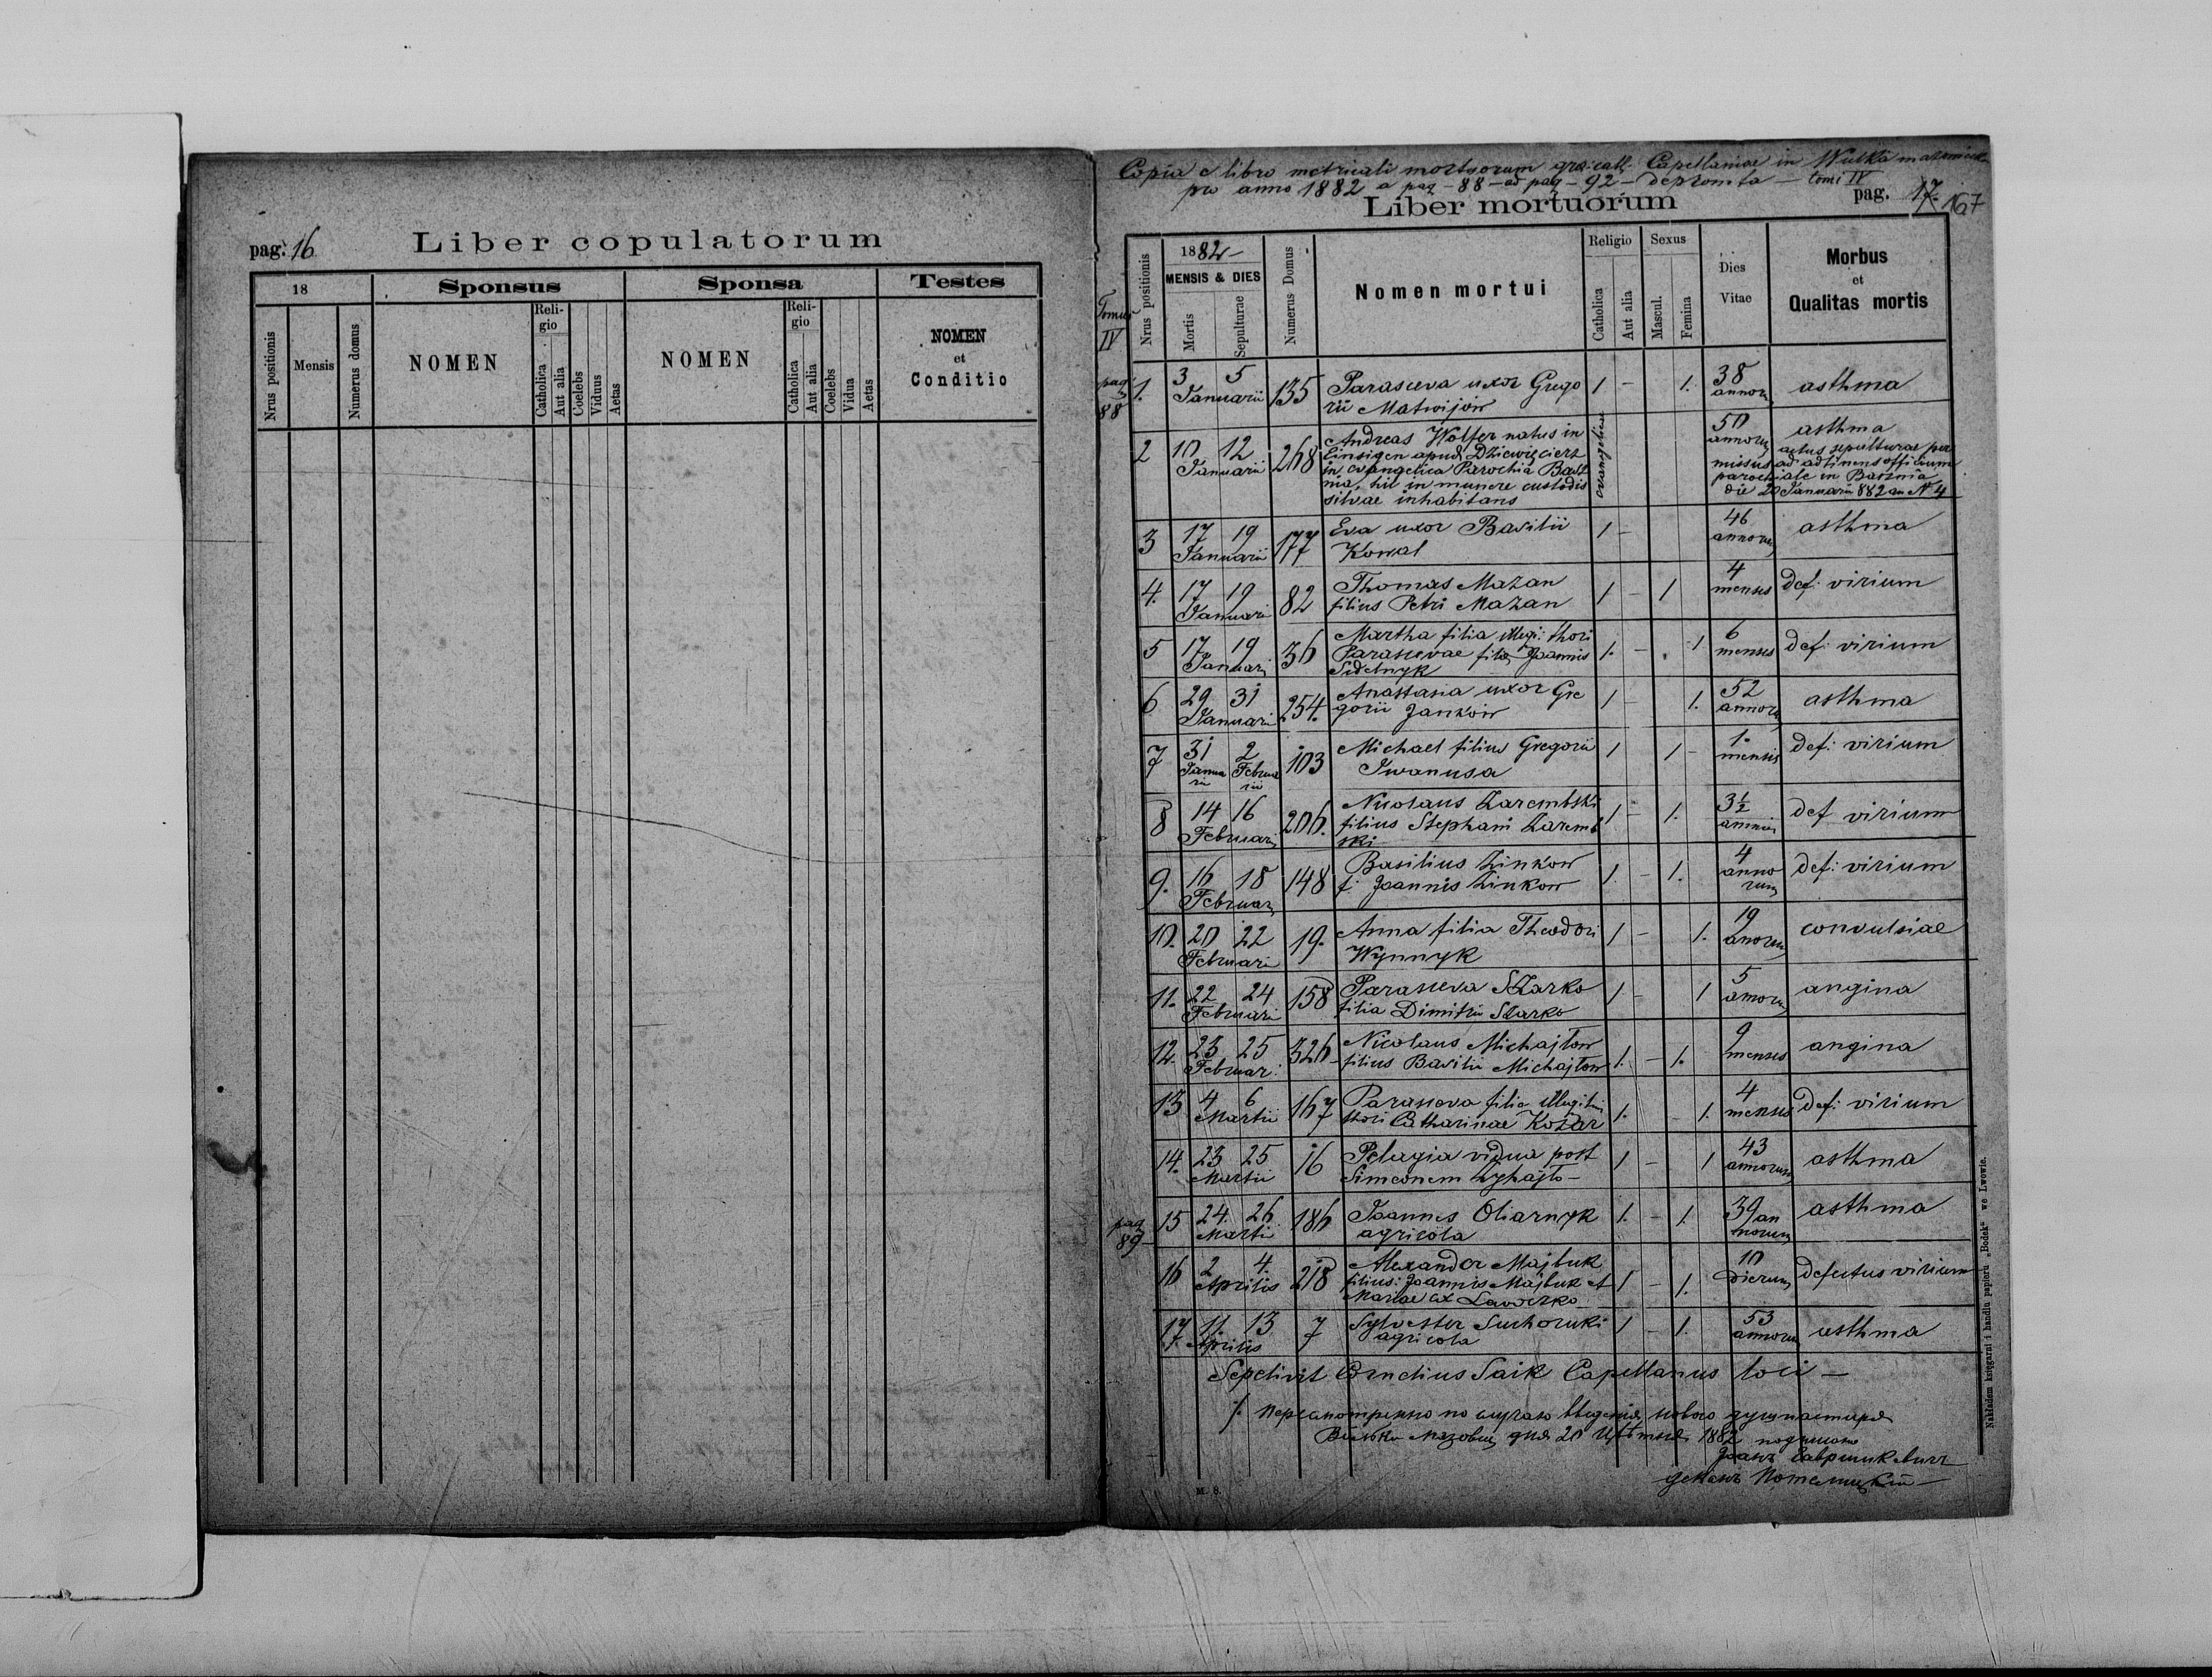 pag. 16
Liber copulatorum
18
Sponsus
Sponsa
Testes
Nrus positionis
Mensis
Numerus domus
NOMEN
Religio
Catholica
Aut alia
Coelebs
Viduus
Aetas
NOMEN
Religio
Catholica
Aut alia
Coelebs
Vidua
Aetas
NOMEN
et
Conditio
Copia e libro metricali mortuorum gr. cath. Capellaniae in Wulka
pro anno 1882 a pag - 88 - ad pag - 92 - deprompta - tomi IV
Liber mortuorum
pag. 17. 167
Tomus
IV
Nrus positionis
1882
MENSIS & DIES
Mortis
Sepulturae
Numerus Domus
Nomen mortui
Religio
Catholica
Aut alia
Sexus
Mascul.
Femina
Dies
Vitae
Morbus
et
Qualitas mortis
pag
88
1. 3 5 135 Parasceva uxor Grego 1 - 1. 38 asthma
Januarii rii Matwijow annor
2 10 12 268 Andreas Wolfer natus in evangelica 50 asthma
Januarii Einsigen apud Dziewięcierz annor actus sepulturae per
in evangelica Parochia Basz missus ad adtinens officium
nia, hic in munere custodis parochiale in Basznia
silvae inhabitans die 20 Januarii 882 an N 4
3 17 19 177 Eva uxor Basilii 1 - 46 asthma
Januarii Kowal annor
4. 17 19 82 Thomas Mazan 1 - 1 4 def. virium
Januari filius Petri Mazan menses
5 17 19 36 Martha filia illegi: thori 1. - 1 6 def: virium
Januari Parascevae filia Joannis menses
Sidelnyk
6 29 31 254. Anastasia uxor Gre 1 - 1. 52 asthma
Januari gorii Jankow annor
7 31 2 103 Michael filius Gregorii 1 1 - 1. def: virium
Janua Februa Iwanusa mensis
rii rii
8 14 16 206. Nicolaus Zarembski 1 - 1. 3½ def virium
Februari filius Stephani Zaremb
ski
9. 16 18 148 Basilius Zinkow 1. - 1. 4 def: virium
Februar f: Joannis Zinkow anno
rum
10. 20 22 19. Anna filia Theodori 1 - 1. 19 convulsiae
Februari Wynnyk
11. 22 24 158 Parasceva Szarko 1 - 1 5 angina
Februari filia Dimitrii Szarko
12. 23 25 326 Nicolaus Michajłow 1. - 1. 9 angina
Februar: filius Basilii Michajłow menses
13 4 6 167 Parasceva filia illegitimi 1. - 1. 4 def: virium
Martii thori Catharinae Kozar menses
14. 23 25 16 Pelagia vidua post 1 - 1 43 asthma
Martii Simeonem annorum
pag
89
15 24. 26 186 Joannes Oliarnyk 1. - 1. 39 an asthma
Martii agricola norum
16 2 4. 218 Alexander Majbuk 1 - 1. 10 defectus virium
Aprilis filius: Joannis Majbuk et dierum
Mariae ex Lawoczko
17. 11 13 7 Sylvester Suchoruki 1 - 1. 53 asthma
Aprilis agricola annorum
Sepelivit Cornelius Saik Capellanus loci -
по
дня 20 1882
деканъ
M. 8.
Nakładem księgarni i handlu papieru „Bodek" we Lwowie.